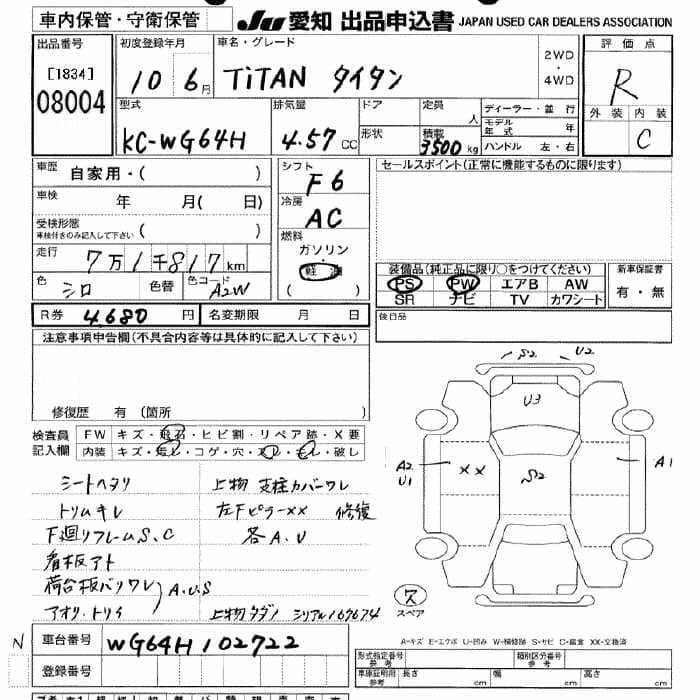 車内保管・守衛保管
JU 愛知 出品申込書 JAPAN USED CAR DEALERS ASSOCIATION
出品番号 初度登録年月 車名・グレード 2WD・4WD 評価点
[1834] 08004 10 6月 TiTAN タイタン R
型式 排気量 ドア 定員 人 ディーラー・並行 外装 内装
KC-WG64H 4.57 CC 形状 積載 3500 kg モデル年式 年 C
ハンドル 左・右
車歴 自家用・( ) シフト F6 セールスポイント(正常に機能するものに限ります)
車検 年 月( 日) 冷房 AC
受検形態 車検付きのみ記入して下さい ( ) 燃料 ガソリン
走行 7万1千817km 軽油 装備品(純正品に限り○をつけてください) 新車保証書
色 シロ 色替 色コード A2W ( ) PS PW エアB AW 有・無
SR ナビ TV カワシート
R券 4,680円 名変期限 月 日 後日品
注意事項申告欄(不具合内容等は具体的に記入して下さい)
S2 U2
U3
修復歴 有 (箇所
検査員記入欄 FW キズ・飛石・ヒビ割・リペア跡・X要
内装 キズ・汚レ・コゲ・穴・スレ・モレ・破レ
A2 U1 XX S2 A1
シートヘタリ 上物 支柱カバーワレ
トリムキレ 左Fピラーxx 修復
下廻リフレームS、C 各A.U
看板アト
荷台板バリワレ A.U.S
アオリ.トリイ 上物タダノ シリアル169674
ス スペア
N 車台番号 WG64H102722
A-キズ E-エクボ U-凹み W-補修跡 S-サビ C-腐食 XX-交換済
登録番号
形式指定番号 参考 類別区分番号 参考
車庫証明用 参考 長さ cm 幅 cm 高さ cm